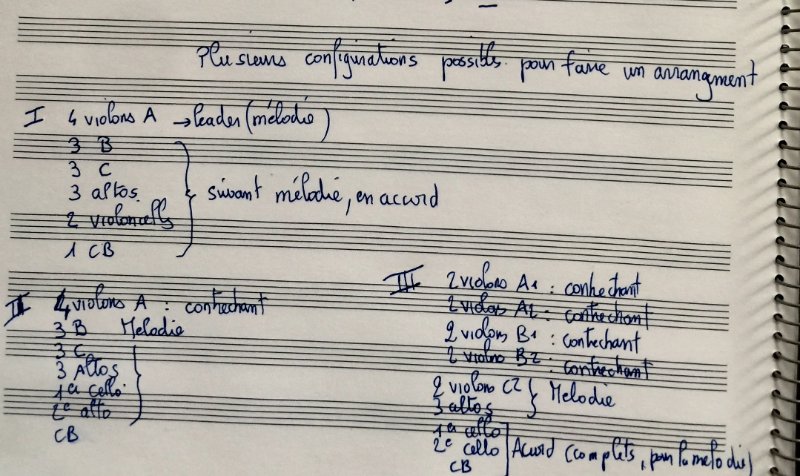 Plusieurs configurations possibles pour faire un arrangment
I 4 violons A → leader (mélodie)
3 B
3 C
3 altos
2 violoncells
1 CB
suivant mélodie, en accord
II 4 violons A : contrechant
3 B Melodie
3 C
3 Altos
1er cello
2e alto
CB
III 2 violons A1 : contrechant
2 violons A2 : contrechant
2 violons B1 : contrechant
2 violons B2 : contrechant
2 violons C2
3 altos
Melodie
1er cello
2e cello
CB
Acord (complets, pour la melodie)